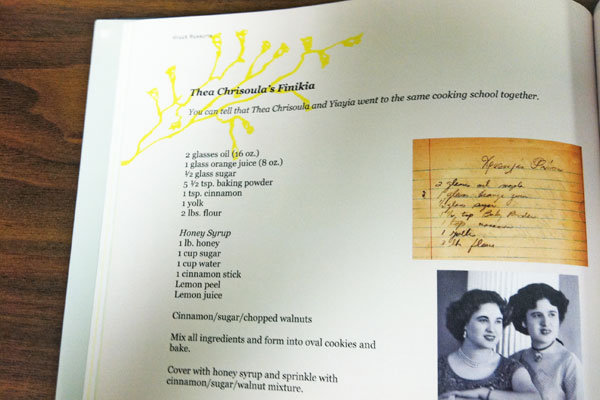 Greek Desserts
Thea Chrisoula's Finikia
You can tell that Thea Chrisoula and Yiayia went to the same cooking school together.
2 glasses oil (16 oz.)
1 glass orange juice (8 oz.)
½ glass sugar
5 ½ tsp. baking powder
1 tsp. cinnamon
1 yolk
2 lbs. flour
Honey Syrup
1 lb. honey
1 cup sugar
1 cup water
1 cinnamon stick
Lemon peel
Lemon juice
Cinnamon/sugar/chopped walnuts
Mix all ingredients and form into oval cookies and
bake.
Cover with honey syrup and sprinkle with
cinnamon/sugar/walnut mixture.
2 glasses oil
glass orange
glass sugar
tsp
1 yolk
flour